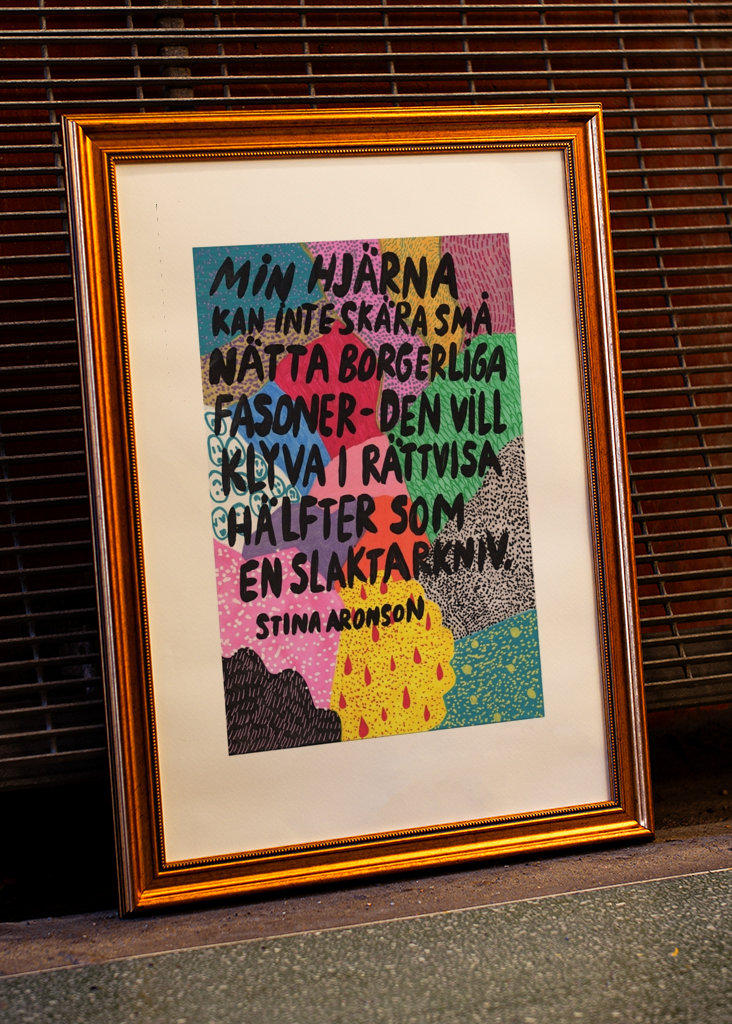 MIN HJÄRNA
KAN INTE SKÄRA SMÅ
NÄTTA BORGERLIGA
FASONER-DEN VILL
KLYVA I RÄTTVISA
HÄLFTER SOM
EN SLAKTARKNIV.
STINA ARONSON